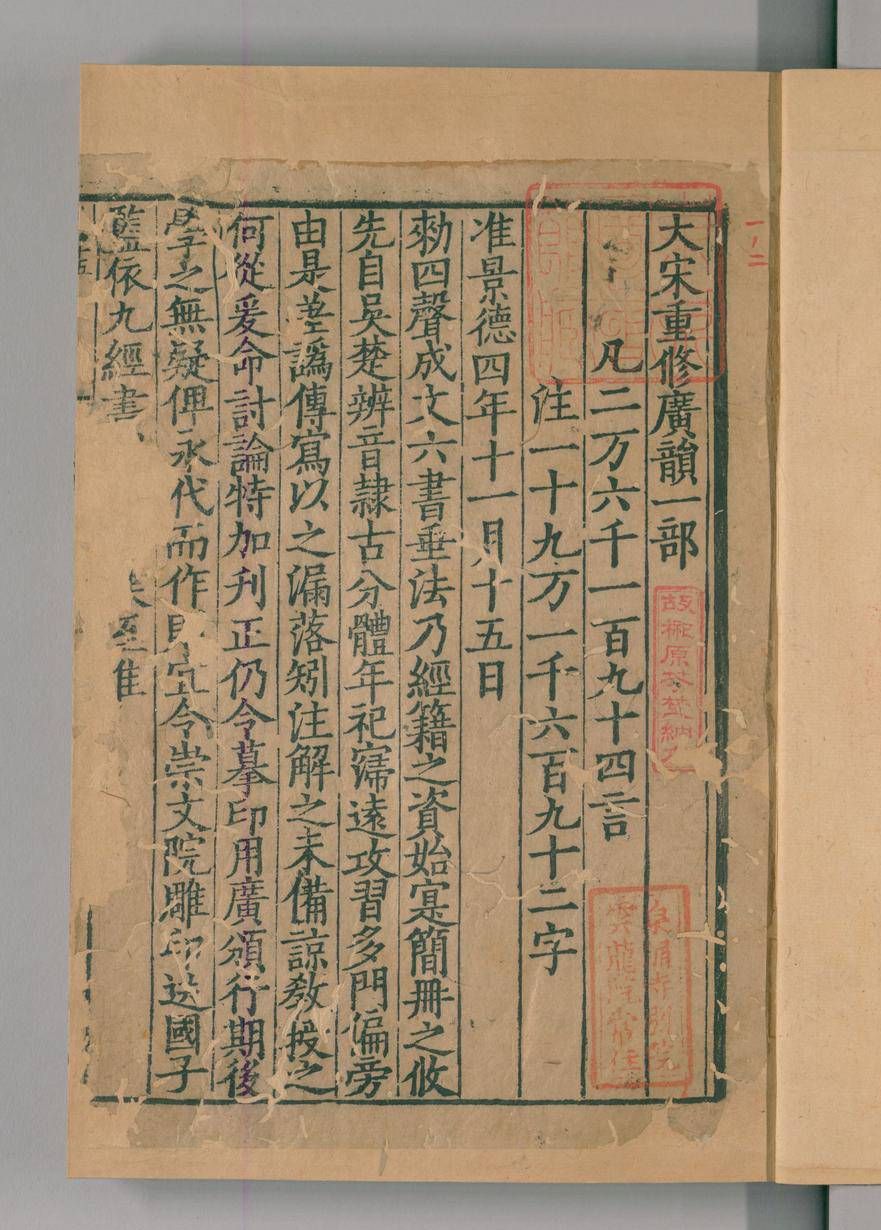 大宋重修廣韻一部
凡二万六千一百九十四言
注一十九万一千六百九十二字
准景德四年十一月十五日
勑四聲成文六書垂法乃經籍之資始寔簡冊之攸
先自吳楚辨音隷古分體年祀寖遠攻習多門偏旁
由是差譌傳寫以之漏落矧注解之未備諒教授之
何從爰命討論特加刋正仍令摹印用廣頒行期後
學之無疑俾永代而作則宜令崇文院雕印送國子
監依九經書